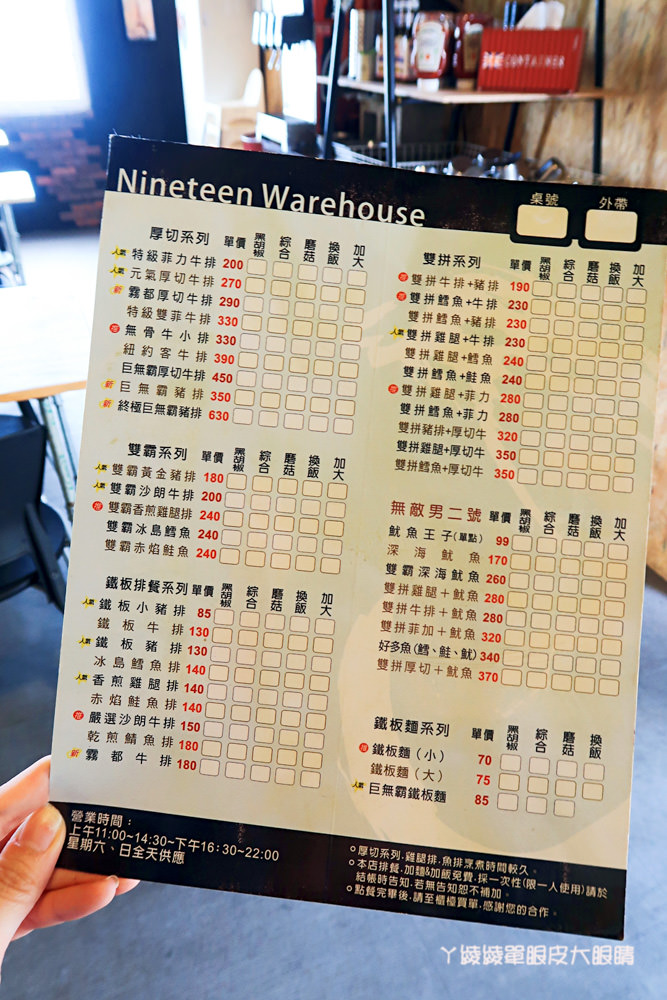 CONTAINER
Nineteen Warehouse
桌號 外帶
厚切系列 單價 黑胡椒 綜合 磨菇 換飯 加大
人氣 特級菲力牛排 200
人氣 元氣厚切牛排 270
新 霧都厚切牛排 290
特級雙菲牛排 330
推 無骨牛小排 330
紐約客牛排 390
巨無霸厚切牛排 450
新 巨無霸豬排 350
新 終極巨無霸豬排 630
雙霸系列 單價 黑胡椒 綜合 磨菇 換飯 加大
人氣 雙霸黃金豬排 180
人氣 雙霸沙朗牛排 200
推 雙霸香煎雞腿排 240
雙霸冰島鱈魚 240
雙霸赤焰鮭魚 240
鐵板排餐系列 單價 黑胡椒 綜合 磨菇 換飯 加大
人氣 鐵板小豬排 85
鐵板牛排 130
人氣 鐵板豬排 130
冰島鱈魚排 140
人氣 香煎雞腿排 140
赤焰鮭魚排 140
推 嚴選沙朗牛排 150
乾煎鯖魚排 180
新 霧都牛排 180
雙拼系列 單價 黑胡椒 綜合 磨菇 換飯 加大
推 雙拼牛排+豬排 190
推 雙拼鱈魚+牛排 230
雙拼鱈魚+豬排 230
人氣 雙拼雞腿+牛排 230
雙拼雞腿+鱈魚 240
雙拼鱈魚+鮭魚 240
推 雙拼雞腿+菲力 280
雙拼鱈魚+菲力 280
雙拼豬排+厚切牛 320
雙拼雞腿+厚切牛 350
雙拼鱈魚+厚切牛 350
無敵男二號 單價 黑胡椒 綜合 磨菇 換飯 加大
魷魚王子(單點) 99
深海魷魚 170
雙霸深海魷魚 260
雙拼雞腿+魷魚 280
雙拼牛排+魷魚 280
雙拼菲加+魷魚 320
好多魚(鱈、鮭、魷) 340
雙拼厚切+魷魚 370
鐵板麵系列 單價 黑胡椒 綜合 磨菇 換飯
推 鐵板麵(小) 70
鐵板麵(大) 75
人氣 巨無霸鐵板麵 85
營業時間：
上午11:00~14:30~下午16:30~22:00
星期六、日全天供應
○厚切系列.雞腿排.魚排烹煮時間較久。
○本店排餐,加麵&加飯免費,採一次性(限一人使用)請於
結帳時告知,若無告知恕不補加。
○點餐完畢後,請至櫃檯買單,感謝您的合作。
ㄚ綾綾單眼皮大眼睛